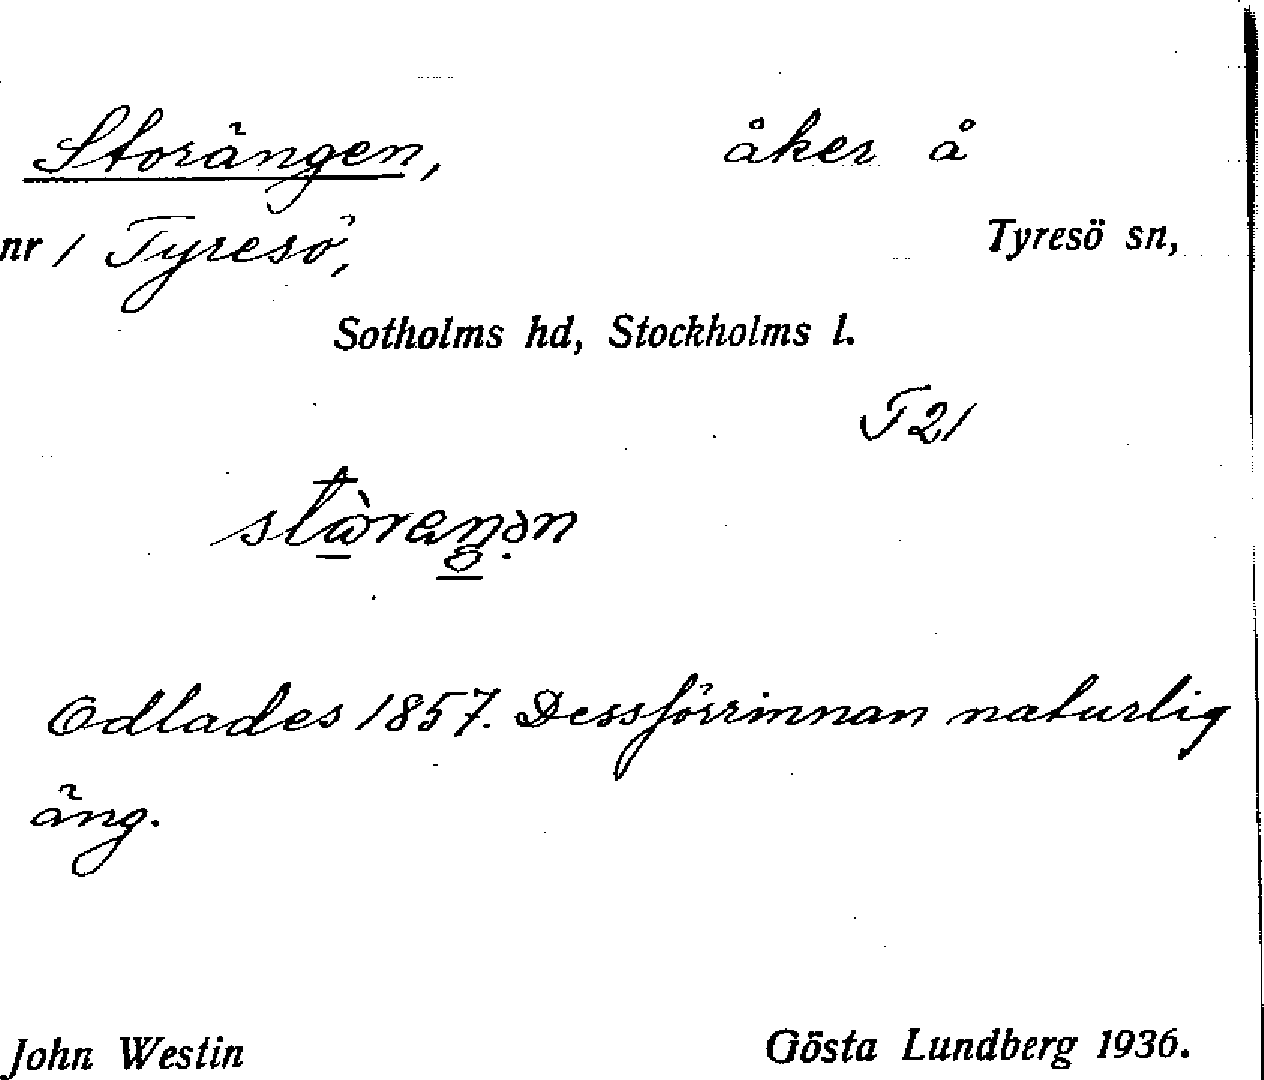 Storängen, åker å
nr 1 Tyresö, Tyresö sn,
Sotholms hd, Stockholms l.
F21
Odlades 1857. Dessförinnan naturlig
äng.
John Westin Gösta Lundberg 1936.